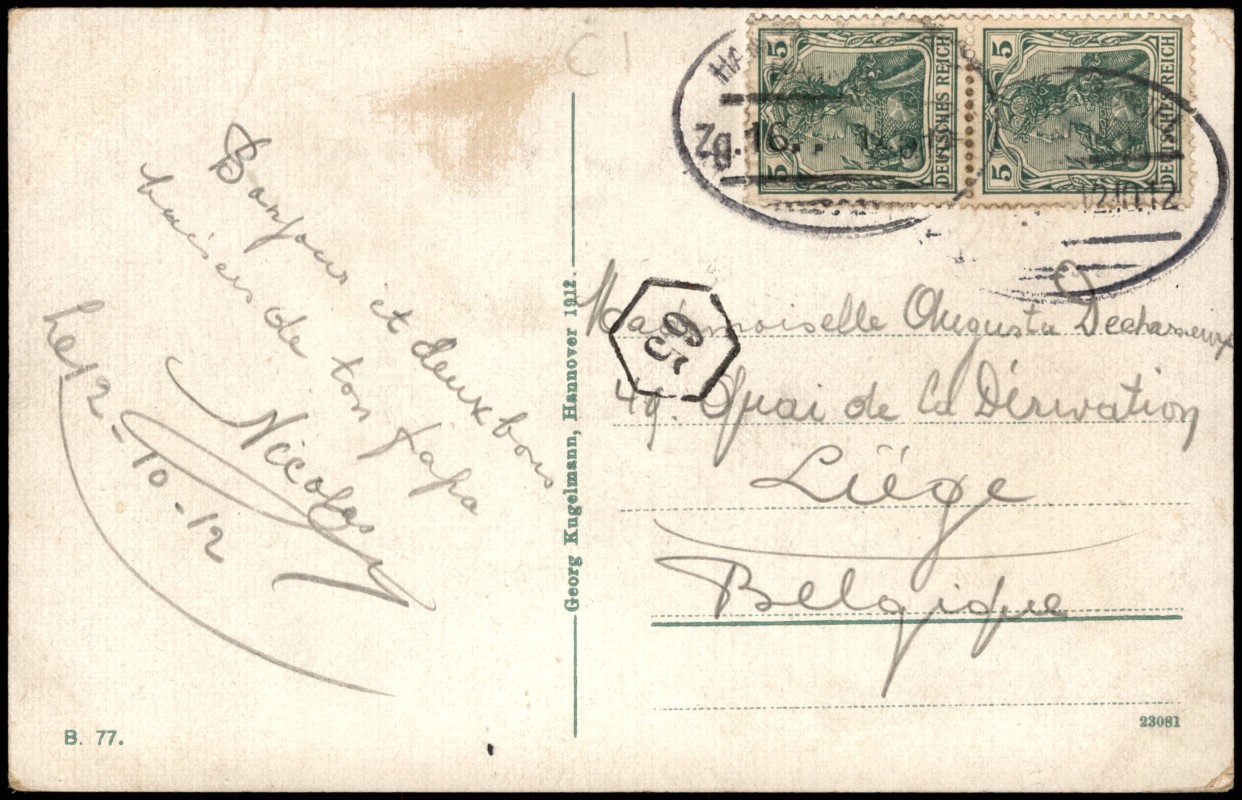 C 1
5 5 DEUTSCHES REICH
5 5 DEUTSCHES REICH
Zg. 16.
12.10.12
Bonjour et deux bons
baisers de ton papa
Nicolas
Le 12-10-12
65
Mademoiselle Augusta
49. Quai de la Dérivation
Liége
Belgique
Georg Kugelmann, Hannover 1912.
B. 77.
23081